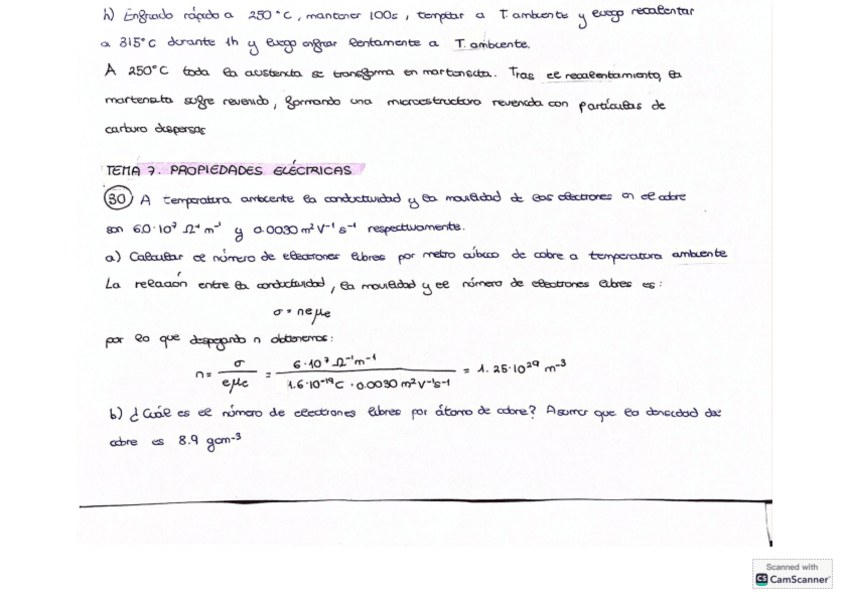 h) Enfriado rápido a 250°C, mantener 100s, templar a T ambiente y luego recalentar
a 315°C durante 1h y luego enfriar lentamente a T. ambiente.
A 250°C toda la austenita se transforma en martensita. Tras el recalentamiento, la
martensita sufre revenido, formando una microestructura revenida con partículas de
carburo dispersas
TEMA 7. PROPIEDADES ELÉCTRICAS
30 A temperatura ambiente la conductividad y la movilidad de los electrones en el cobre
son 6.0·10⁷ Ω⁻¹m⁻¹ y 0.0030 m²V⁻¹s⁻¹ respectivamente.
a) Calcular el número de electrones libres por metro cúbico de cobre a temperatura ambiente
La relación entre la conductividad, la movilidad y el número de electrones libres es:
σ = neμe
por lo que despejando n obtenemos:
n = σ / eμe = 6·10⁷ Ω⁻¹m⁻¹ / 1.6·10⁻¹⁹C · 0.0030 m²V⁻¹s⁻¹ = 1.25·10²⁹ m⁻³
b) ¿Cuál es el número de electrones libres por átomo de cobre? Asumir que la densidad del
cobre es 8.9 gcm⁻³
Scanned with
CS CamScanner